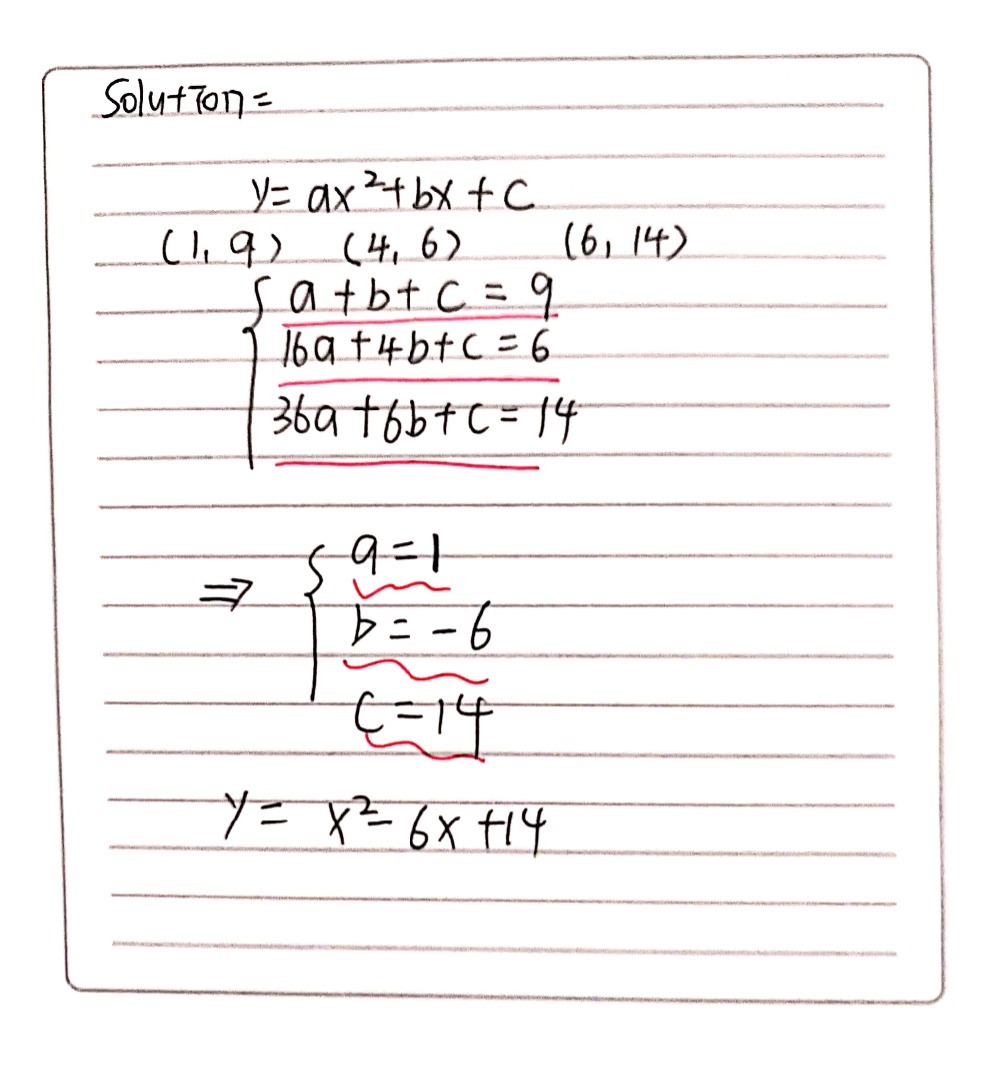 Solution=
y= ax²+bx+c
(1, 9) (4, 6) (6, 14)
a+b+c=9
16a+4b+c=6
36a+6b+c=14
⇒ a=1
b=-6
c=14
y= x²-6x+14